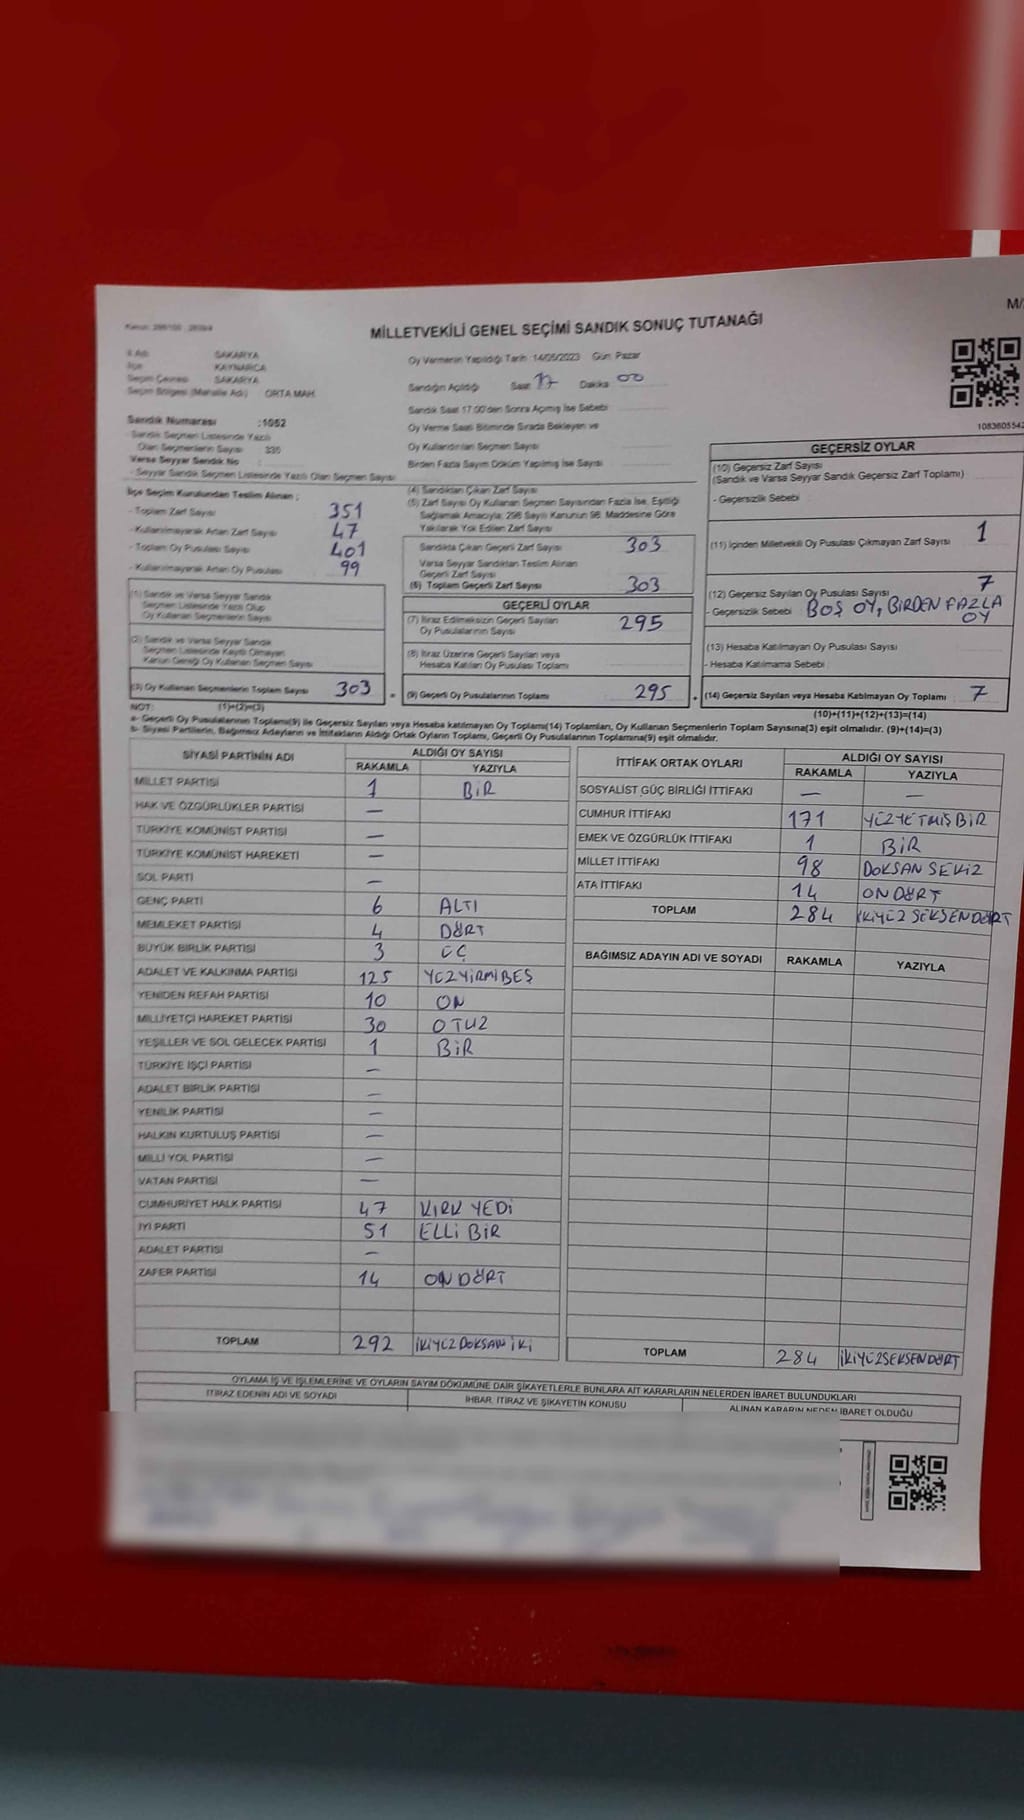 M/
MİLLETVEKİLİ GENEL SEÇİMİ SANDIK SONUÇ TUTANAĞI
İl Adı SAKARYA
İlçe KAYNARCA
Seçim Çevresi SAKARYA
Seçim Bölgesi (Mahalle Adı) ORTA MAH.
Sandık Numarası :1052
- Sandık Seçmen Listesinde Yazılı
Olan Seçmenlerin Sayısı
Varsa Seyyar Sandık No :
- Seyyar Sandık Seçmen Listesinde Yazılı Olan Seçmen Sayısı
Oy Vermenin Yapıldığı Tarih :14/05/2023 Gün: Pazar
Sandığın Açıldığı Saat 17 Dakika 00
Sandık Saat 17:00'den Sonra Açılmış İse Sebebi
Oy Verme Saati Bitiminde Sırada Bekleyen ve
Oy Kullandırılan Seçmen Sayısı
Birden Fazla Sayım Döküm Yapılmış İse Sayısı
1083605542
İlçe Seçim Kurulundan Teslim Alınan ;
- Toplam Zarf Sayısı 351
- Kullanılmayarak Artan Zarf Sayısı 47
- Toplam Oy Pusulası Sayısı 401
- Kullanılmayarak Artan Oy Pusulası 99
(1) Sandık ve Varsa Seyyar Sandık
Seçmen Listesinde Yazılı Olup
Oy Kullanan Seçmenlerin Sayısı
(2) Sandık ve Varsa Seyyar Sandık
Seçmen Listesinde Kayıtlı Olmayan
Kanun Gereği Oy Kullanan Seçmen Sayısı
(3) Oy Kullanan Seçmenlerin Toplam Sayısı 303 =
(4) Sandıktan Çıkan Zarf Sayısı
(5) Zarf Sayısı Oy Kullanan Seçmen Sayısından Fazla İse, Eşitliği
Sağlamak Amacıyla; 298 Sayılı Kanunun 98. Maddesine Göre
Yakılarak Yok Edilen Zarf Sayısı
Sandıkta Çıkan Geçerli Zarf Sayısı 303
Varsa Seyyar Sandıktan Teslim Alınan
Geçerli Zarf Sayısı
(6) Toplam Geçerli Zarf Sayısı 303
GEÇERLİ OYLAR
(7) İtiraz Edilmeksizin Geçerli Sayılan
Oy Pusulalarının Sayısı 295
(8) İtiraz Üzerine Geçerli Sayılan veya
Hesaba Katılan Oy Pusulası Toplamı
(9) Geçerli Oy Pusulalarının Toplamı 295
GEÇERSİZ OYLAR
(10) Geçersiz Zarf Sayısı
(Sandık ve Varsa Seyyar Sandık Geçersiz Zarf Toplamı)
- Geçersizlik Sebebi
(11) İçinden Milletvekili Oy Pusulası Çıkmayan Zarf Sayısı 1
(12) Geçersiz Sayılan Oy Pusulası Sayısı 7
- Geçersizlik Sebebi BOŞ OY, BİRDEN FAZLA
OY
(13) Hesaba Katılmayan Oy Pusulası Sayısı
- Hesaba Katılmama Sebebi
(14) Geçersiz Sayılan veya Hesaba Katılmayan Oy Toplamı 7
NOT: (1)+(2)=(3) (10)+(11)+(12)+(13)=(14)
a- Geçerli Oy Pusulalarının Toplamı(9) ile Geçersiz Sayılan veya Hesaba katılmayan Oy Toplamı(14) Toplamları, Oy Kullanan Seçmenlerin Toplam Sayısına(3) eşit olmalıdır. (9)+(14)=(3)
b- Siyasi Partilerin, Bağımsız Adayların ve İttifakların Aldığı Ortak Oyların Toplamı, Geçerli Oy Pusulalarının Toplamına(9) eşit olmalıdır.
SİYASİ PARTİNİN ADI ALDIĞI OY SAYISI
RAKAMLA YAZIYLA
MİLLET PARTİSİ 1 BİR
HAK VE ÖZGÜRLÜKLER PARTİSİ —
TÜRKİYE KOMÜNİST PARTİSİ —
TÜRKİYE KOMÜNİST HAREKETİ —
SOL PARTİ —
GENÇ PARTİ 6 ALTI
MEMLEKET PARTİSİ 4 DÖRT
BÜYÜK BİRLİK PARTİSİ 3 ÜÇ
ADALET VE KALKINMA PARTİSİ 125 YÜZYİRMİBEŞ
YENİDEN REFAH PARTİSİ 10 ON
MİLLİYETÇİ HAREKET PARTİSİ 30 OTUZ
YEŞİLLER VE SOL GELECEK PARTİSİ 1 BİR
TÜRKİYE İŞÇİ PARTİSİ —
ADALET BİRLİK PARTİSİ —
YENİLİK PARTİSİ —
HALKIN KURTULUŞ PARTİSİ —
MİLLİ YOL PARTİSİ —
VATAN PARTİSİ —
CUMHURİYET HALK PARTİSİ 47 KIRK YEDİ
İYİ PARTİ 51 ELLİ BİR
ADALET PARTİSİ —
ZAFER PARTİSİ 14 ONDÖRT
TOPLAM 292 İKİYÜZDOKSAN İKİ
İTTİFAK ORTAK OYLARI ALDIĞI OY SAYISI
RAKAMLA YAZIYLA
SOSYALİST GÜÇ BİRLİĞİ İTTİFAKI — —
CUMHUR İTTİFAKI 171 YÜZYETMİŞBİR
EMEK VE ÖZGÜRLÜK İTTİFAKI 1 BİR
MİLLET İTTİFAKI 98 DOKSAN SEKİZ
ATA İTTİFAKI 14 ONDÖRT
TOPLAM 284 İKİYÜZ SEKSENDÖRT
BAĞIMSIZ ADAYIN ADI VE SOYADI RAKAMLA YAZIYLA
TOPLAM 284 İKİYÜZSEKSENDÖRT
OYLAMA İŞ VE İŞLEMLERİNE VE OYLARIN SAYIM DÖKÜMÜNE DAİR ŞİKAYETLERLE BUNLARA AİT KARARLARIN NELERDEN İBARET BULUNDUKLARI
İTİRAZ EDENİN ADI VE SOYADI İHBAR, İTİRAZ VE ŞİKAYETİN KONUSU ALINAN KARARIN NEDEN İBARET OLDUĞU